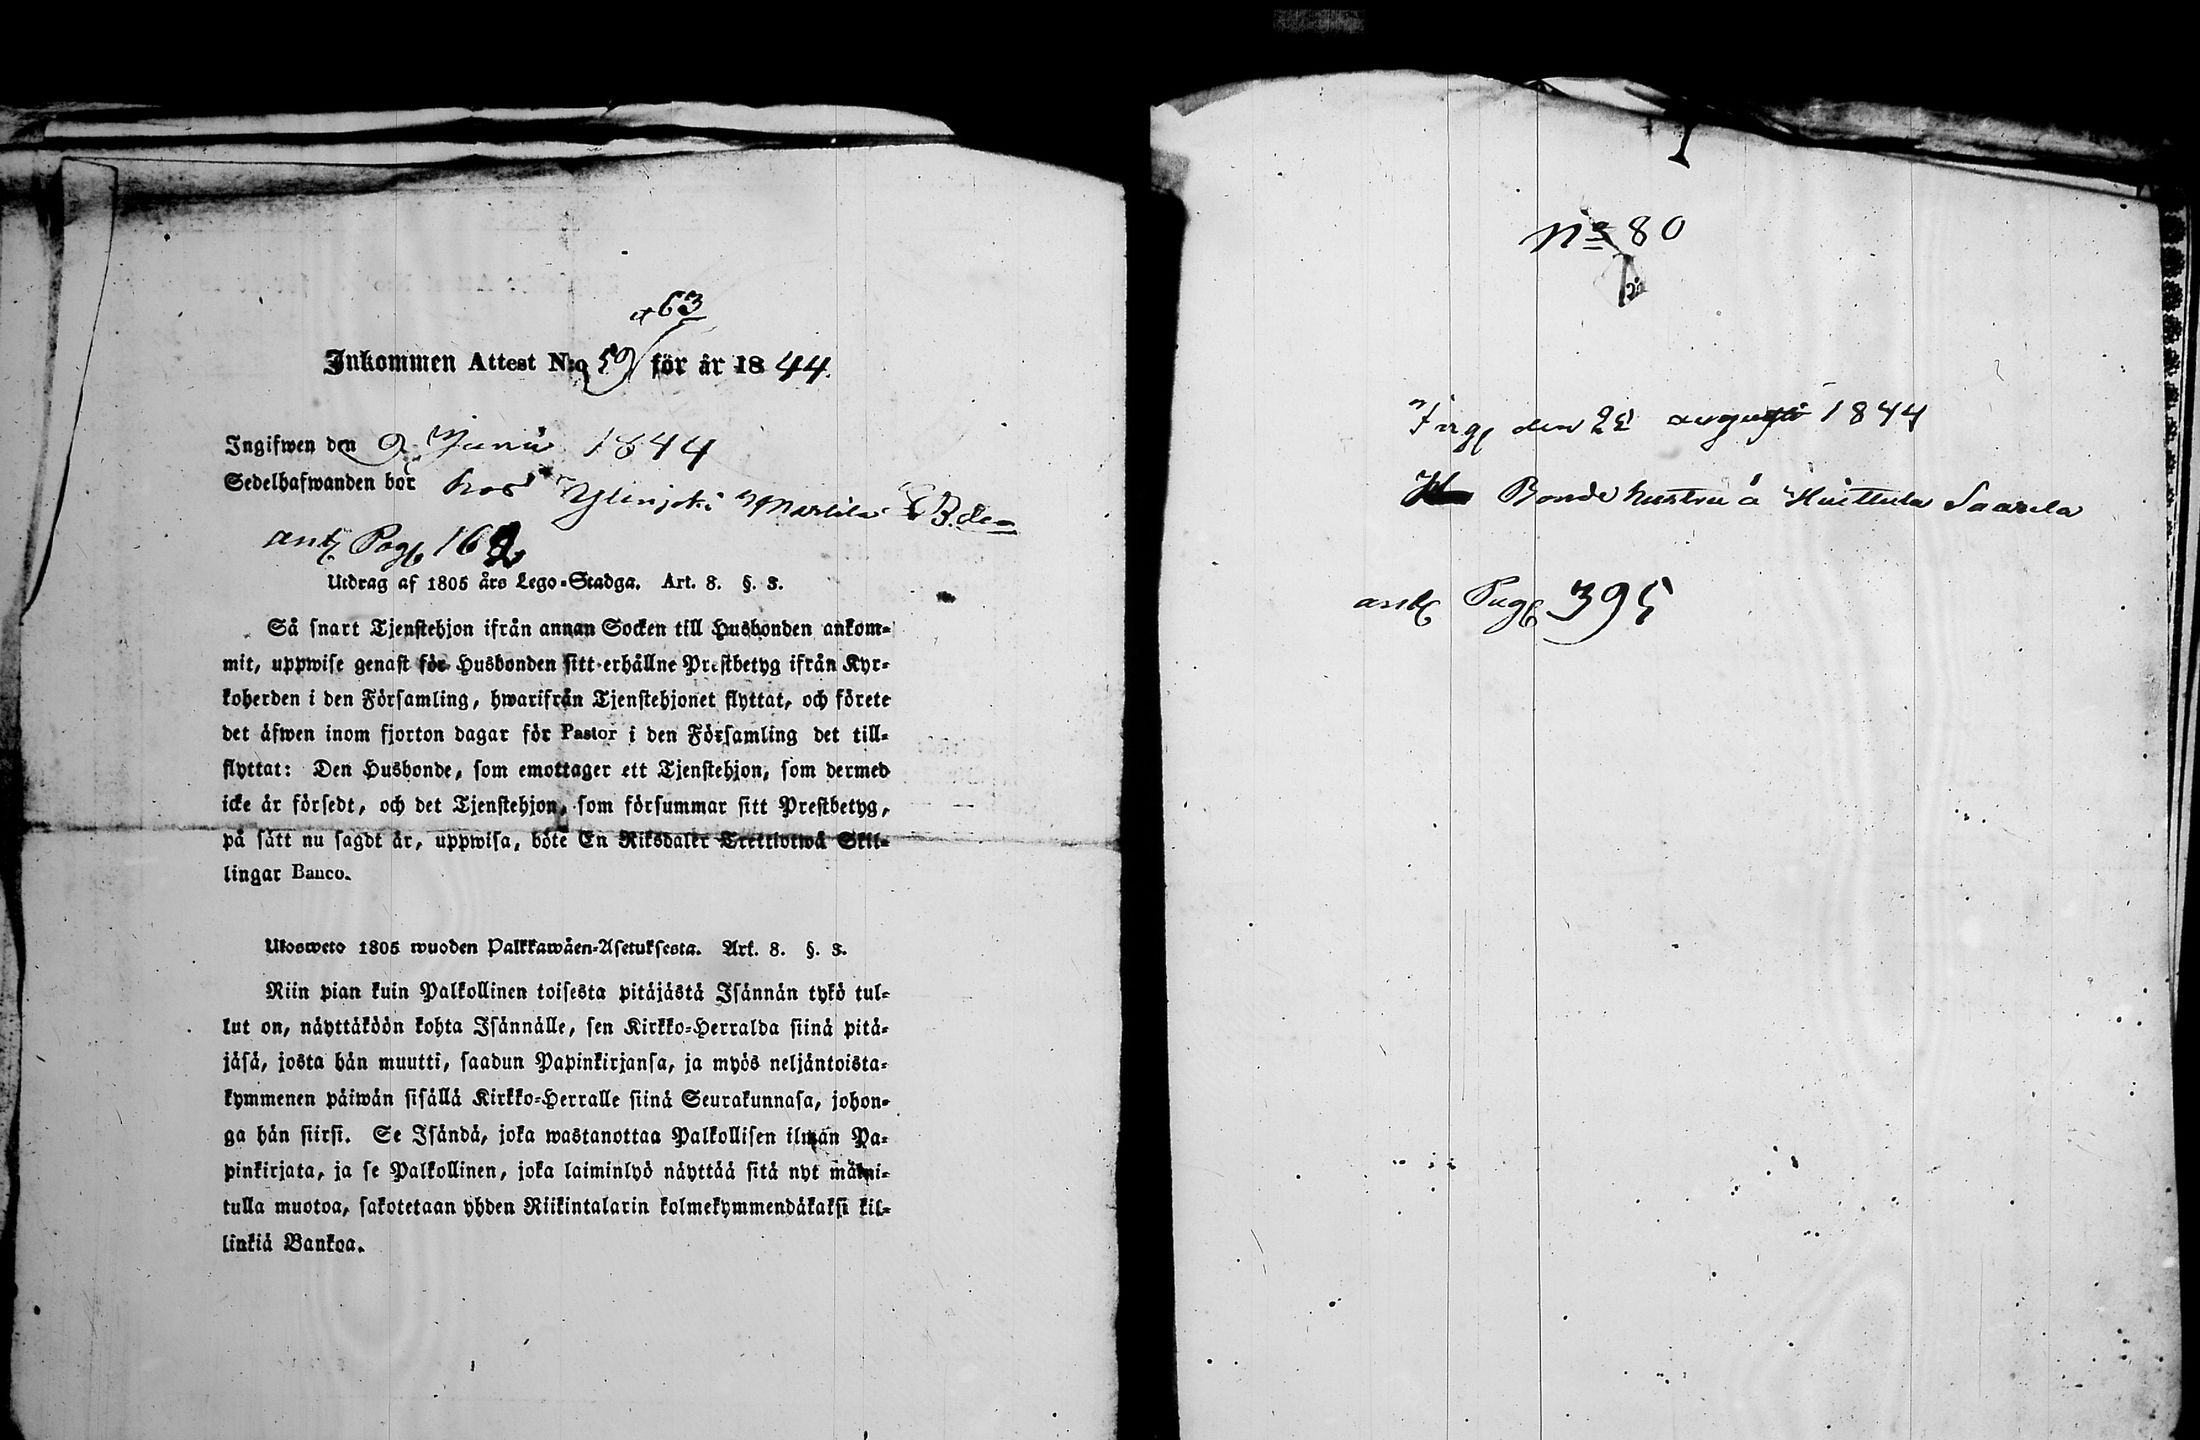 et 63
Inkommen Attest N:o 59 för år 1844.
Ingifwen den 9 Junii 1844
Sedelhafwanden bor hos Ylinjoki Marttila
ant. Pag. 162
Utdrag af 1805 års Lego-Stadga. Art. 8. §. 3.
Så snart Tjenstehjon ifrån annan Socken till Husbonden ankom-
mit, uppwise genast för Husbonden sitt erhållne Prestbetyg ifrån Kyr-
koherden i den Församling, hwarifrån Tjenstehjonet flyttat, och förete
det äfwen inom fjorton dagar för Pastor i den Församling det till-
flyttat: Den Husbonde, som emottager ett Tjenstehjon, som dermed
icke är försedt, och det Tjenstehjon, som försummar sitt Prestbetyg,
på sätt nu sagdt är, uppwisa, böte En Riksdaler Trettiotwå Skil-
lingar Banco.
Ulosweto 1805 wuoden Palkkawäen-Asetuksesta. Art. 8. §. 3.
Niin pian kuin Palkollinen toisesta pitäjästä Isännän tykö tul-
lut on, näyttäköön kohta Isännälle, sen Kirkko-Herralda siinä pitä-
jäsä, josta hän muutti, saadun Papinkirjansa, ja myös neljäntoista-
kymmenen päiwän sisällä Kirkko-Herralle siinä Seurakunnasa, johon-
ga hän siirsi. Se Isändä, joka wastanottaa Palkollisen ilman Pa-
pinkirjata, ja se Palkollinen, joka laiminlyö näyttää sitä nyt maini-
tulla muotoa, sakotetaan yhden Riikintalarin kolmekymmendäkaksi kil-
linkiä Bankoa.
No 80
Ing. den 22 augusti 1844
Bonde hustru å Huittula Saarela
ant. Pag. 395